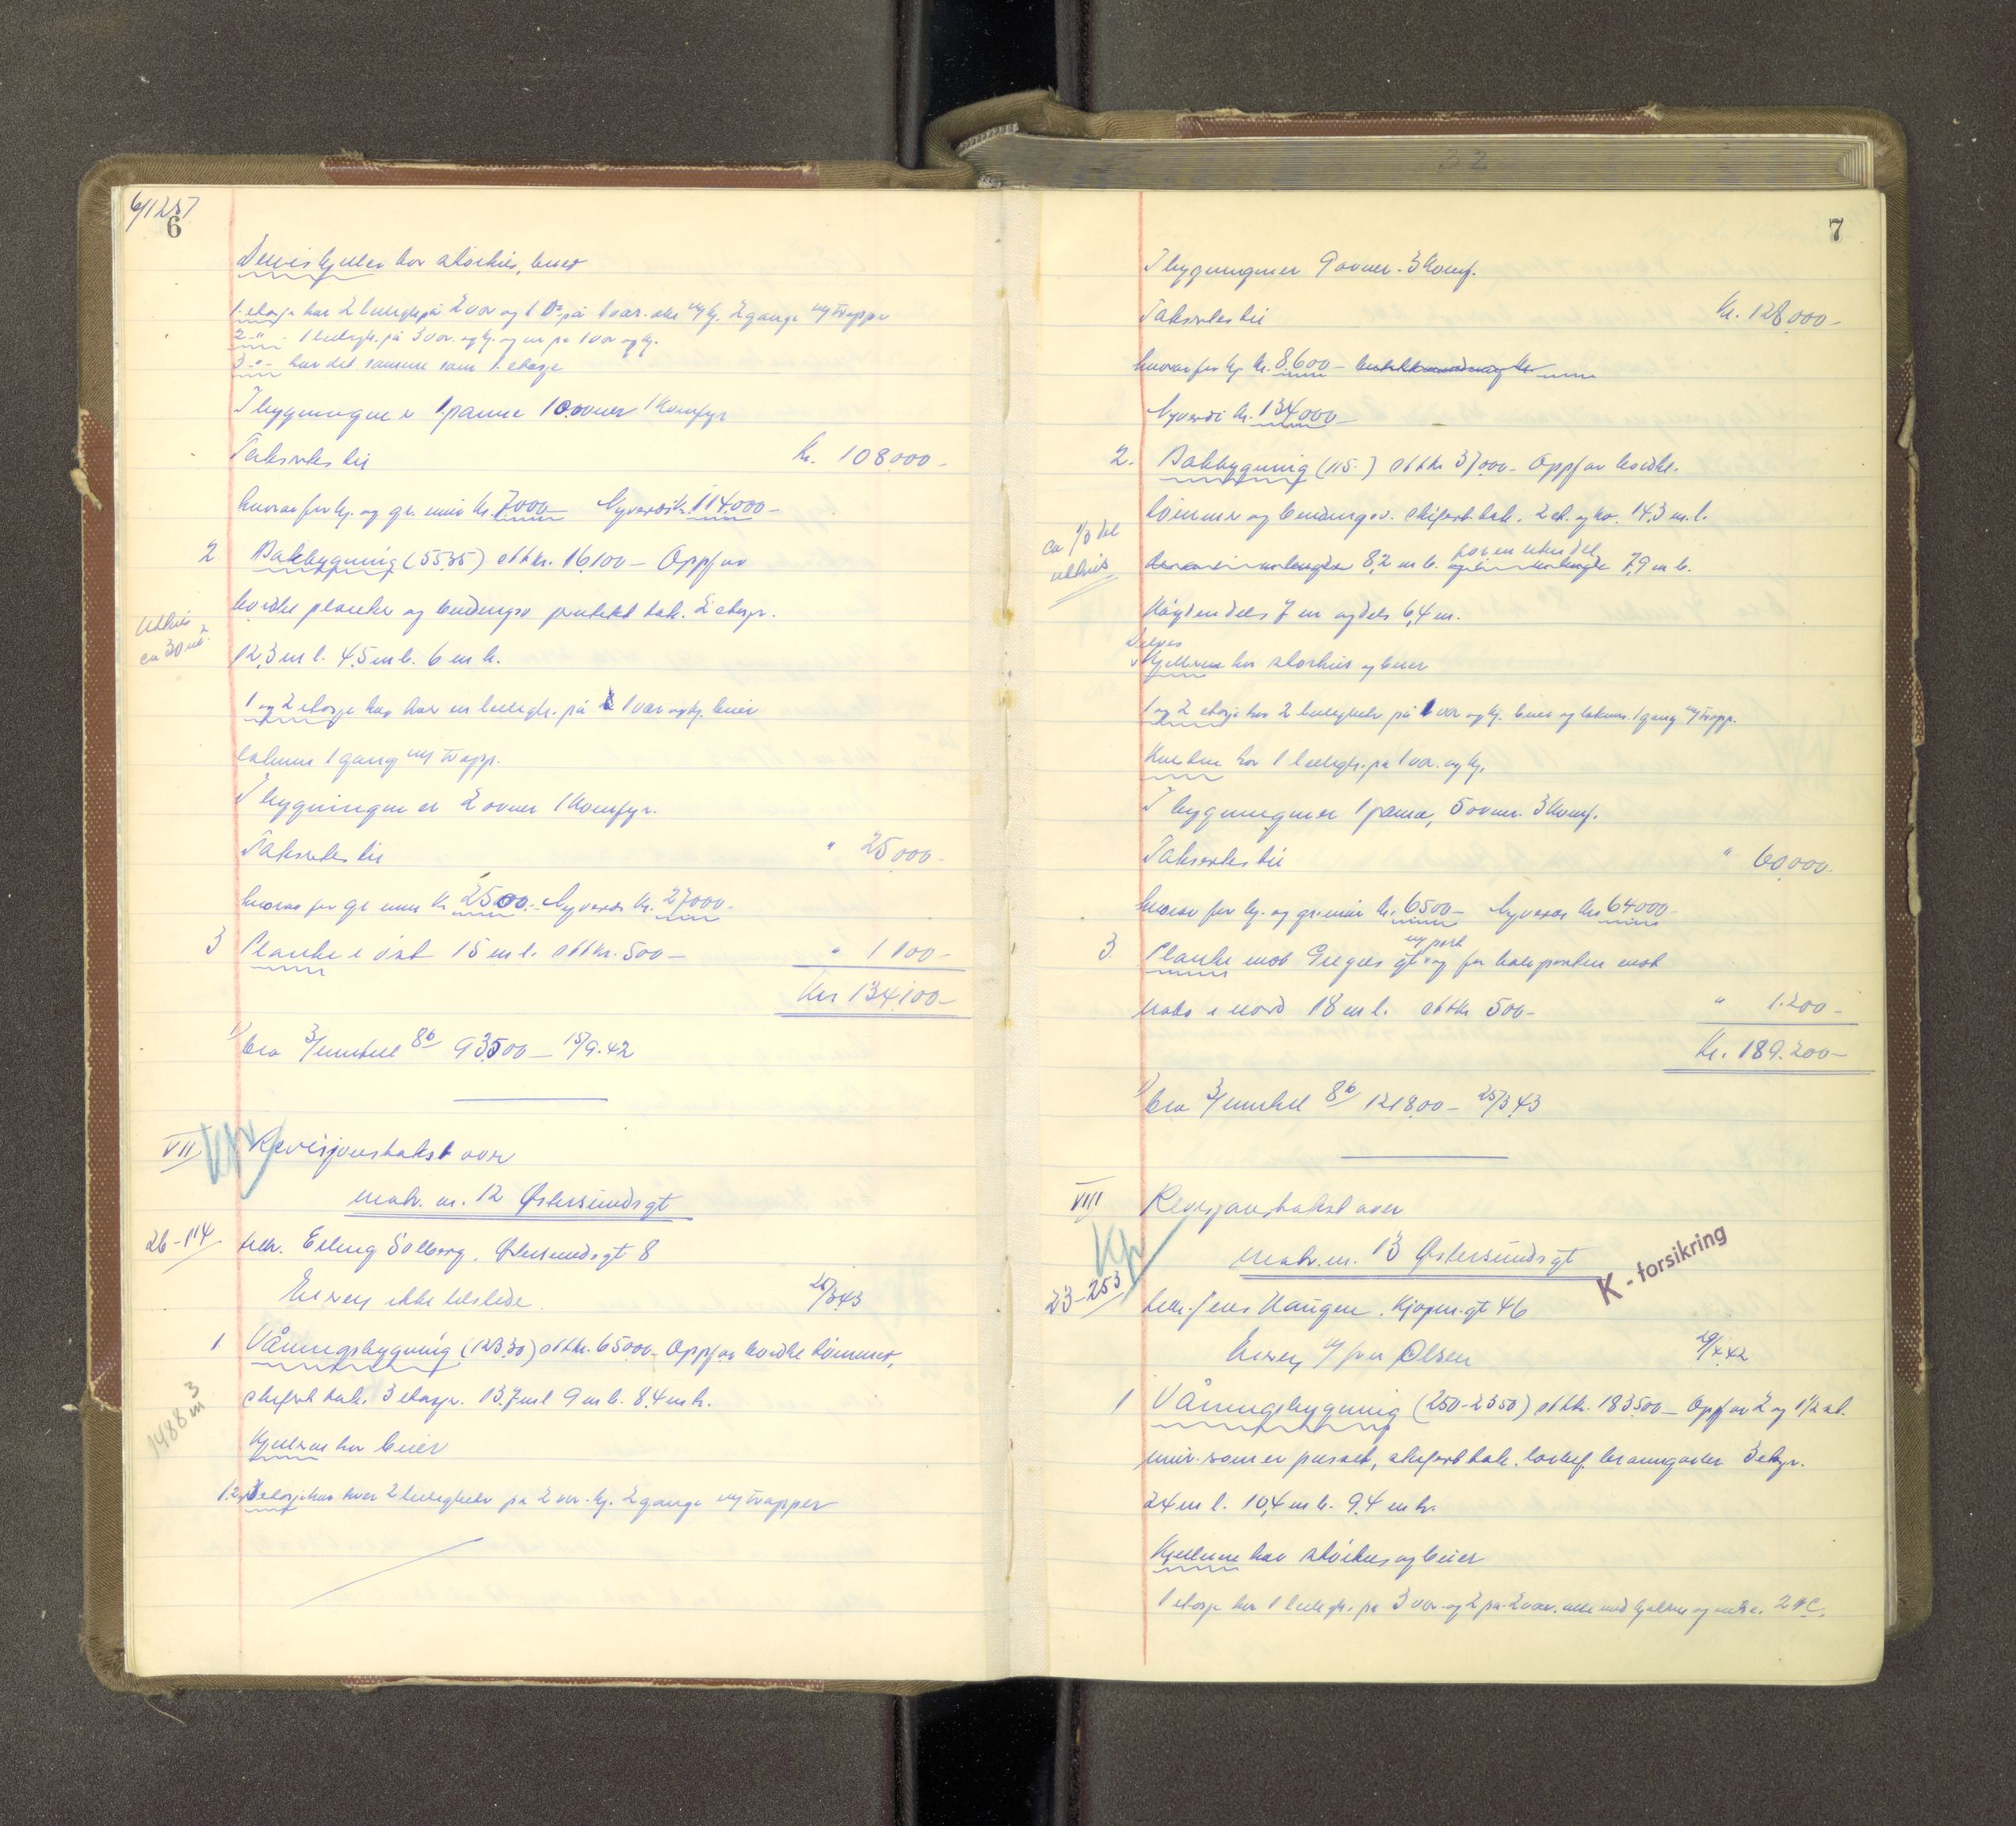 6/1257
6
Delvis kjeller har storhus, boder
1. etasje har 2 leiligh. på 2 vær og 1 Do på 1 vær. alle m/kj. 2 gange m/trapper
2 -"- 1 leiligh. på 3 vær. og kj. og en på 1 vær og kj.
3 -"- har det samme som 1. etasje
I bygningen er 1 panne 10 ovner 1 komfyr
Taksertes til Kr. 108000-
hvorav for kj. og gr. mur kr. 7000- Nyverdi kr. 114.000-
2 Bakbygning (55.35) ottkr. 16100- Oppf av
bordkl planker og bindingsv pultekt tak. 2 etasjr.
Uthus ca 30 m2.
12,3 m l. 4,5 m b. 6 m h.
1 og 2 etasje har hver en leiligh. på 1 vær og kj. boder
latriner 1 gang m/ trapp.
I bygningen er 2 ovner 1 Komfyr.
Taksertes til " 25000-
hvorav for gr mur kr 2500.- Nyverdi kr. 27000-
3 Planke i öst 15 m l. ottkr. 500- " 1100-
Kr 134.100-
1) bra 3/ murtell 8b 93500- 15/9.42
VII Revisjonstakst over
matr. nr. 12 Østersundsgt
26-114 tilh. Erling Solberg. Østersundsgt 8
Eieren ikke tilstede. 26/3.43
1 Våningsbygning (123.30) ottkr. 65000- Oppf av bordkl tömmer,
skifert tak. 3 etasjr. 13,7 m l 9 m b. 8.4 m h.
1488 m3
Kjelleren har boder
1.2 og 3 etasje har hver 2 leiligheter på 2 vær. kj. 2 gange m/trapper
7
I bygningen er 9 ovner. 3 komf.
Taksertes til Kr. 128.000-
hvorav for kj. kr. 8.600-
Nyverdi kr. 134.000-
2. Bakbygning (115.-) ottkr 37.000- Oppf av bordkl.
tömmer og bindingsv. skifert tak. 2 et. og kv. 14,3 m l.
ca 1/3 del uthus
8,2 m b. for en liten del 7,9 m b.
Höyden dels 7 m og dels 6,4 m.
Delvis
Kjelleren har storhus og boder
1 og 2 etasje har 2 leiligheter på 1 vær og kj. boder og latriner. 1 gang m/trapp.
Kvisten har 1 leiligh. på 1 vær. og kj.
I bygningen er 1 panne, 5 ovner. 3 komf.
Taksertes til " 60.000.
hvorav for kj. og gr. mur kr. 6500- Nyverdi kr 64000-
3. Planke mot Greges gt m/port og for halvparten mot
nabo i nord 18 m l. ottkr 500- " 1.200-
Kr. 189.200-
1) bra 3/ murtell 8b 121800- 25/3.43
VIII Revisjonstakst over
matr. nr. 13 Østersundsgt
K - forsikring
23-253 tilh. Jens Haugen. Kjøpm.gt 46
Eieren v/ fru Olsen 29/4.42
1 Våningsbygning (250-23.50) ottkr. 183500- Oppf av 2 og 1½ st.
mur. som er pusset, skifert tak. lovbef. branngavler 3 etasjr.
24 m l. 10,4 m b. 9.4 m h.
Kjelleren har storhus og boder
1 etasje har 1 leiligh. på 3 vær. og 2 på 2 vær. alle med kjøkken og entre. 2 W.C.